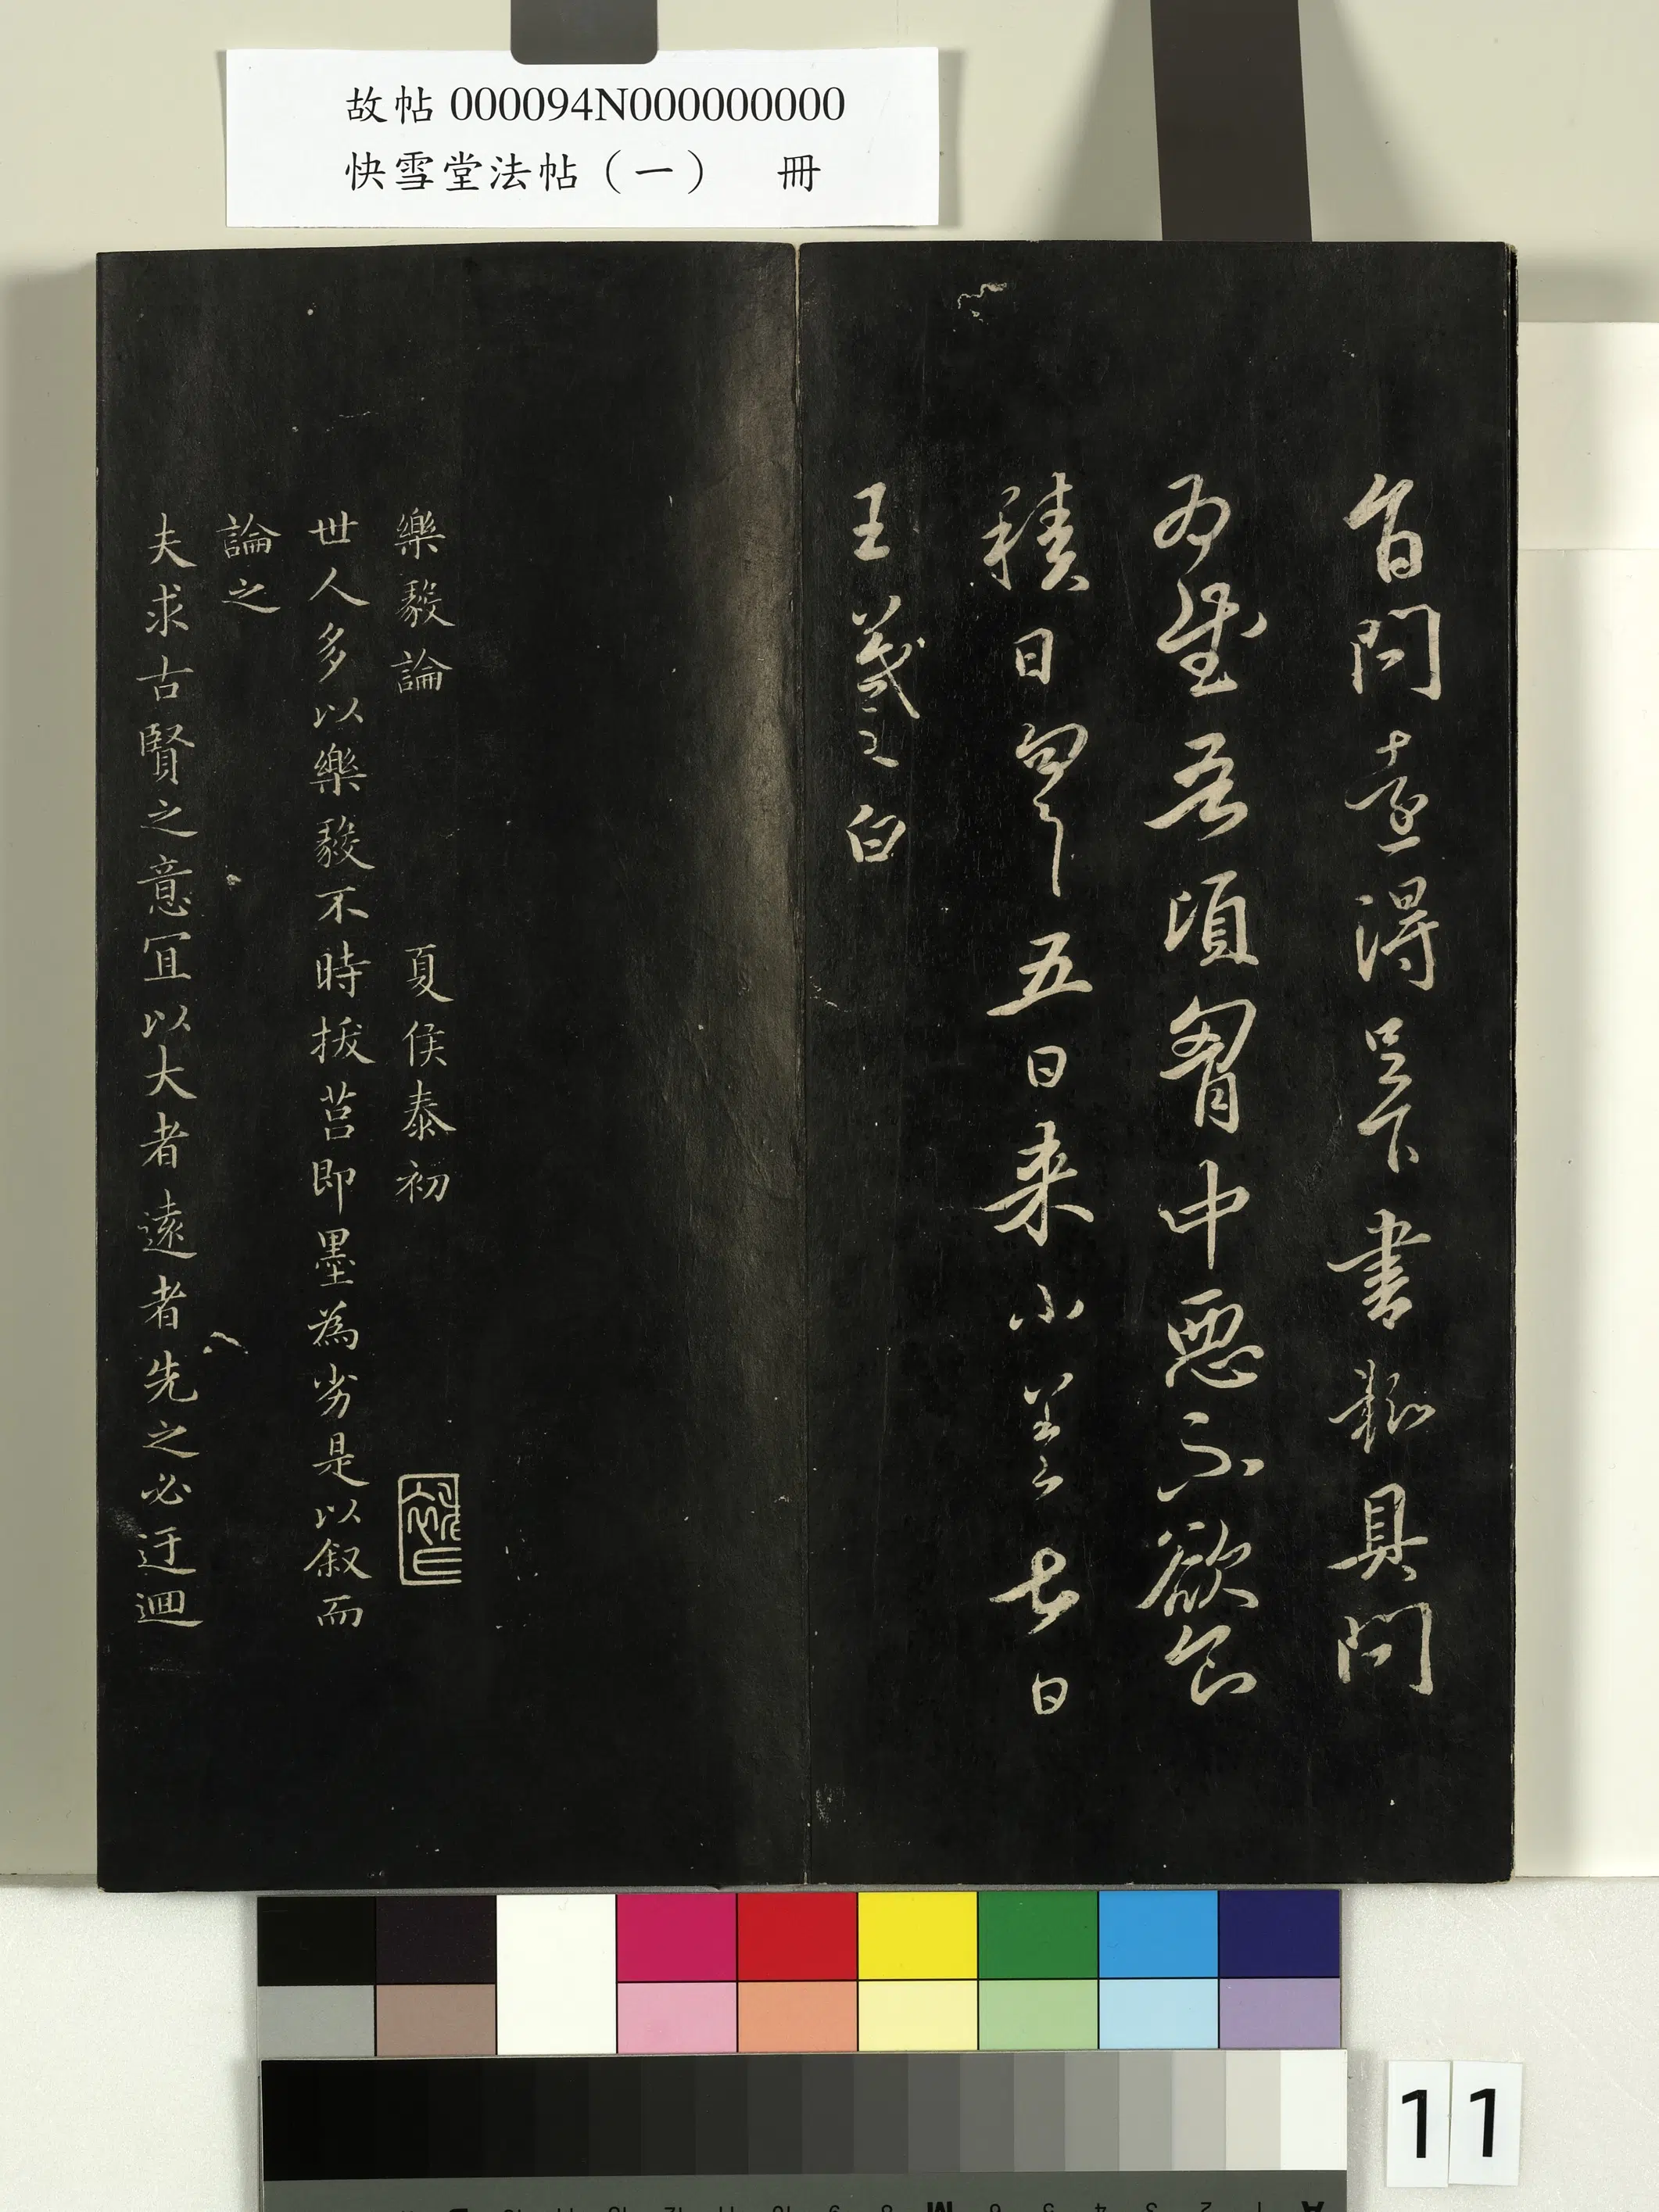 故帖 000094N000000000
快雪堂法帖（一） 冊
百問遠得吳下書粗具問
為慰吾頃胷中惡不欲食
積日勿勿五日来小差尚
王羲之白
樂毅論 夏侯泰初
世人多以樂毅不時拔莒即墨為劣是以叙而
論之
夫求古賢之意宜以大者遠者先之必迂迴
11